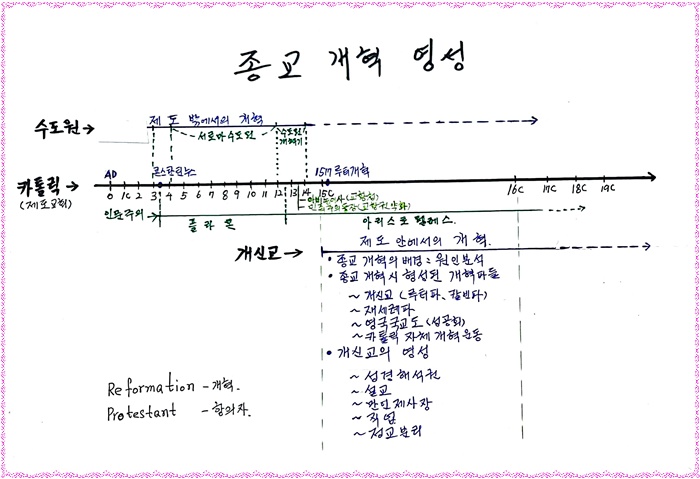 종교 개혁 영성
수도원 →
제도 밖에서의 개혁
서로마수도원
수도원 개혁기
AD
콘스탄틴누스
1517 루터개혁
카톨릭 →
(제도교회)
0 1c 2 3 4 5 6 7 8 9 10 11 12 13 14 15C 16C 17C 18C 19C
플라톤
아리스토텔레스.
개신교 →
제도 안에서의 개혁.
• 종교 개혁의 배경 : 원인분석
• 종교 개혁시 형성된 개혁파들
~ 개신교 (루터파, 칼빈파)
~ 재세례파
~ 영국국교도 (성공회)
~ 카톨릭 자체 개혁운동
• 개신교의 영성
~ 성경해석권
~ 설교
~ 만인제사장
~ 직업
~ 정교분리
Reformation - 개혁.
Protestant - 항의자.